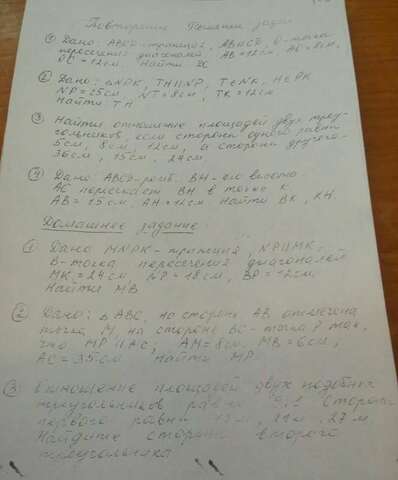 Повторение Решение задач
① Дано: ABCD-трапеция, AB||CD, O-точка
пересечения диагоналей AB=12см, AO=8см,
OC=12см. Найти DC
② Дано: △NPK, TH||NP, T∈NK, H∈PK
NP=25см, NT=8см, TK=12см
Найти TH
③ Найти отношение площадей двух треу-
гольников, если стороны одного равны
5см, 8см, 12см, а стороны другого
36см, 15см, 24см.
④ Дано ABCD-ромб. BH-его высота
AC пересекает BH в точке K
AB=15см, AH=12см Найти BK, KH.
Домашнее задание
① Дано MNPK-трапеция, NP||MK.
B-точка пересечения диагоналей
MK=24см NP=18см, BP=12см.
Найти MB
② Дано: △ABC, на стороне AB отмечена
точка M, на стороне BC-точка P так,
что MP||AC; AM=8см, MB=6см;
AC=35см Найти MP
③ Отношение площадей двух подобных
треугольников равны Сторон
первого равны 27м
Найдите стороны второго
треугольника